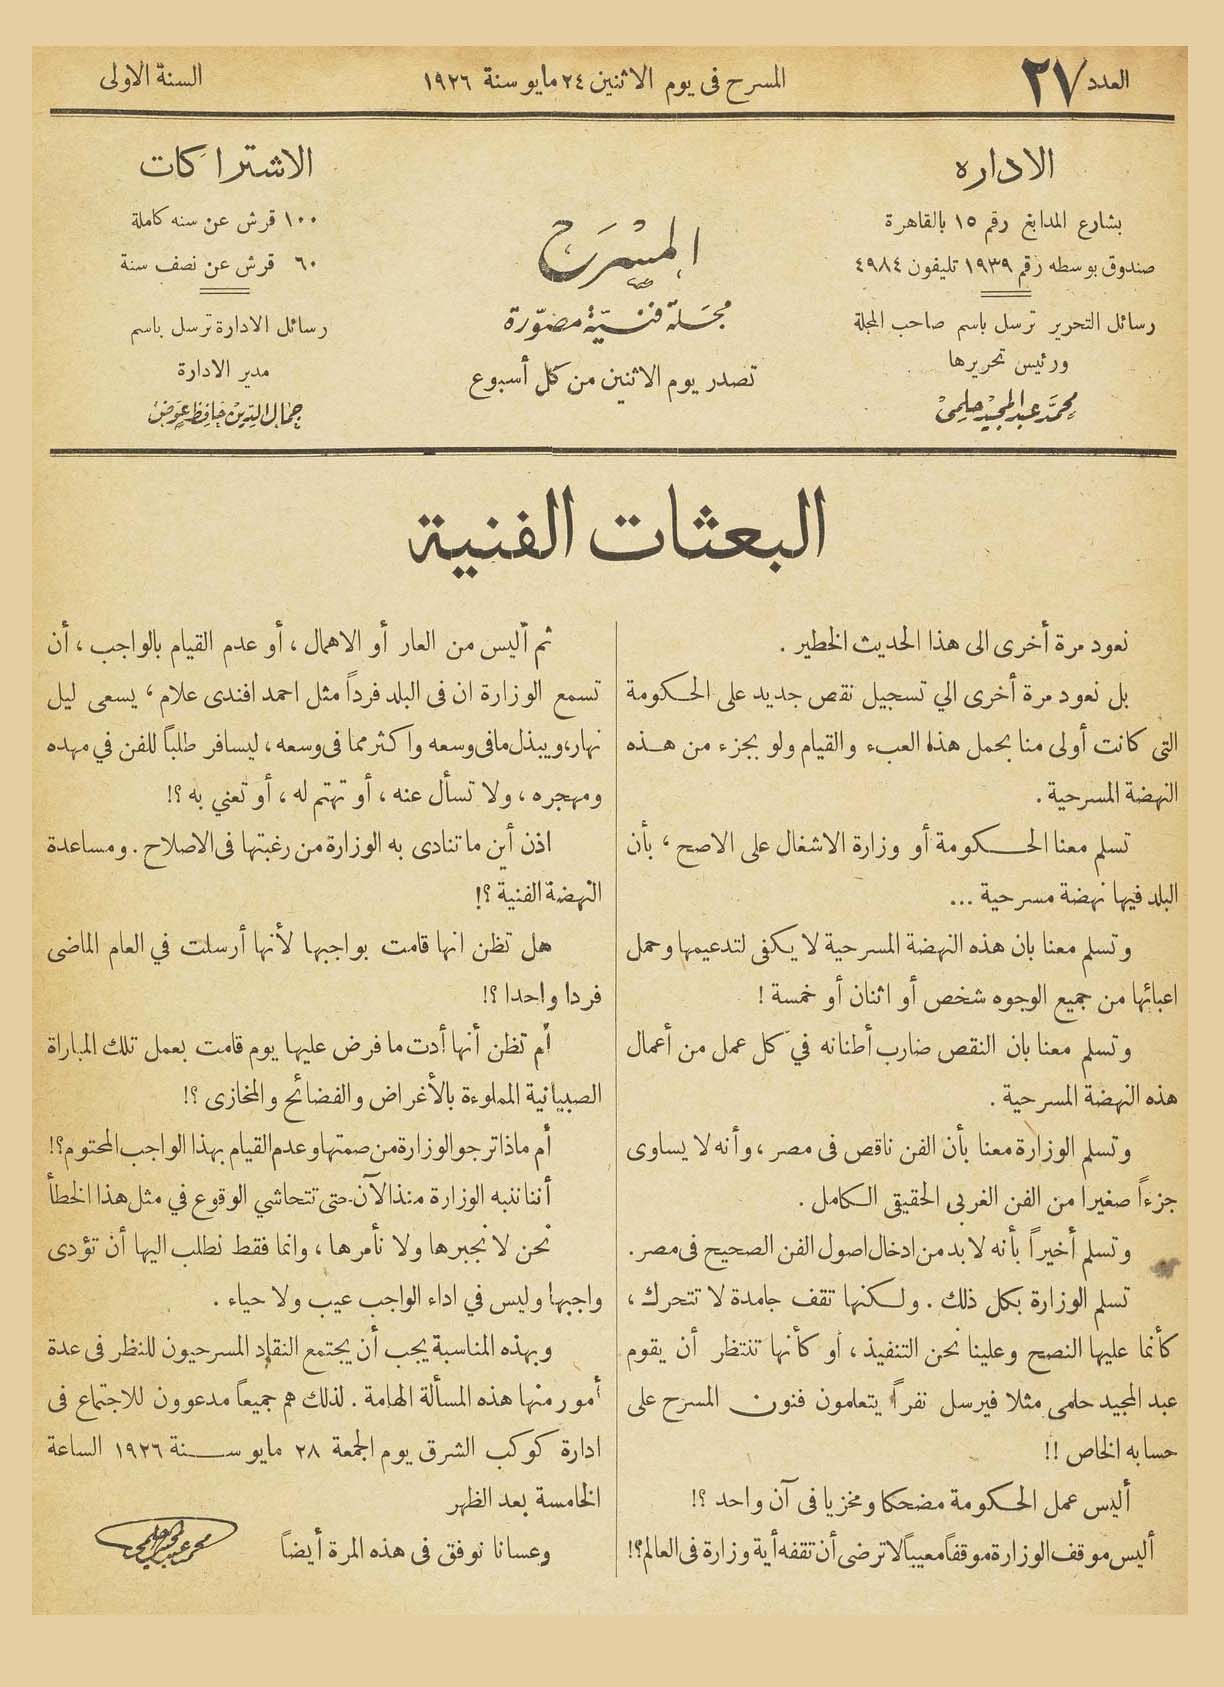 العدد ٢٧
المسرح في يوم الاثنين ٢٤ مايو سنة ١٩٢٦
السنة الاولى
الاداره
بشارع المدابغ رقم ١٥ بالقاهرة
صندوق بوسطه رقم ١٩٣٩ تليفون ٤٩٨٤
رسائل التحرير ترسل باسم صاحب المجلة
ورئيس تحريرها
محمد عبد المجيد حلمى
المسرح
مجلة فنية مصورة
تصدر يوم الاثنين من كل أسبوع
الاشتراكات
١٠٠ قرش عن سنه كاملة
٦٠ قرش عن نصف سنة
رسائل الادارة ترسل باسم
مدير الادارة
جمال الدين حافظ عوض
البعثات الفنية
نعود مرة أخرى الى هذا الحديث الخطير .
بل نعود مرة أخرى الي تسجيل نقص جديد على الحكومة
التى كانت أولى منا بحمل هذا العبء والقيام ولو بجزء من هذه
النهضة المسرحية .
تسلم معنا الحكومة أو وزارة الاشغال على الاصح ، بأن
البلد فيها نهضة مسرحية ...
وتسلم معنا بان هذه النهضة المسرحية لا يكفى لتدعيمها وحمل
اعبائها من جميع الوجوه شخص أو اثنان أو خمسة !
وتسلم معنا بان النقص ضارب أطنانه في كل عمل من أعمال
هذه النهضة المسرحية .
وتسلم الوزارة معنا بأن الفن ناقص فى مصر ، وأنه لا يساوى
جزءاً صغيرا من الفن الغربى الحقيقى الكامل .
وتسلم أخيراً بأنه لا بد من ادخال اصول الفن الصحيح فى مصر .
تسلم الوزارة بكل ذلك . ولكنها تقف جامدة لا تتحرك ،
كأنما عليها النصح وعلينا نحن التنفيذ ، أو كأنها تنتظر أن يقوم
عبد المجيد حلمى مثلا فيرسل نفراً يتعلمون فنون المسرح على
حسابه الخاص !!
أليس عمل الحكومة مضحكا ومخزيا فى آن واحد ؟!
أليس موقف الوزارة موقفاً معيباً لا ترضى أن تقفه أية وزارة فى العالم؟!
ثم أليس من العار أو الاهمال ، أو عدم القيام بالواجب ، أن
تسمع الوزارة ان فى البلد فرداً مثل احمد افندى علام ، يسعى ليل
نهار، ويبذل ما فى وسعه واكثر مما فى وسعه ، ليسافر طلباً للفن في مهده
ومهجره ، ولا تسأل عنه ، أو تهتم له ، أو تعني به ؟!
اذن أين ما تنادى به الوزارة من رغبتها فى الاصلاح . ومساعدة
النهضة الفنية ؟!
هل تظن انها قامت بواجبها لأنها أرسلت في العام الماضى
فردا واحدا ؟!
أم تظن أنها أدت ما فرض عليها يوم قامت بعمل تلك المباراة
الصبيانية المملوءة بالأغراض والفضائح والمخازى ؟!
أم ماذا ترجو الوزارة من صمتها وعدم القيام بهذا الواجب المحتوم؟!
أننا ننبه الوزارة منذ الآن حتى تتحاشي الوقوع في مثل هذا الخطأ
نحن لا نجبرها ولا نأمرها ، وانما فقط نطلب اليها أن تؤدى
واجبها وليس في اداء الواجب عيب ولا حياء .
وبهذه المناسبة يجب أن يجتمع النقاد المسرحيون للنظر فى عدة
أمور منها هذه المسألة الهامة . لذلك هم جميعاً مدعوون للاجتماع فى
ادارة كوكب الشرق يوم الجمعة ٢٨ مايو سنة ١٩٢٦ الساعة
الخامسة بعد الظهر
وعسانا نوفق فى هذه المرة أيضاً
محمد عبد المجيد حلمى